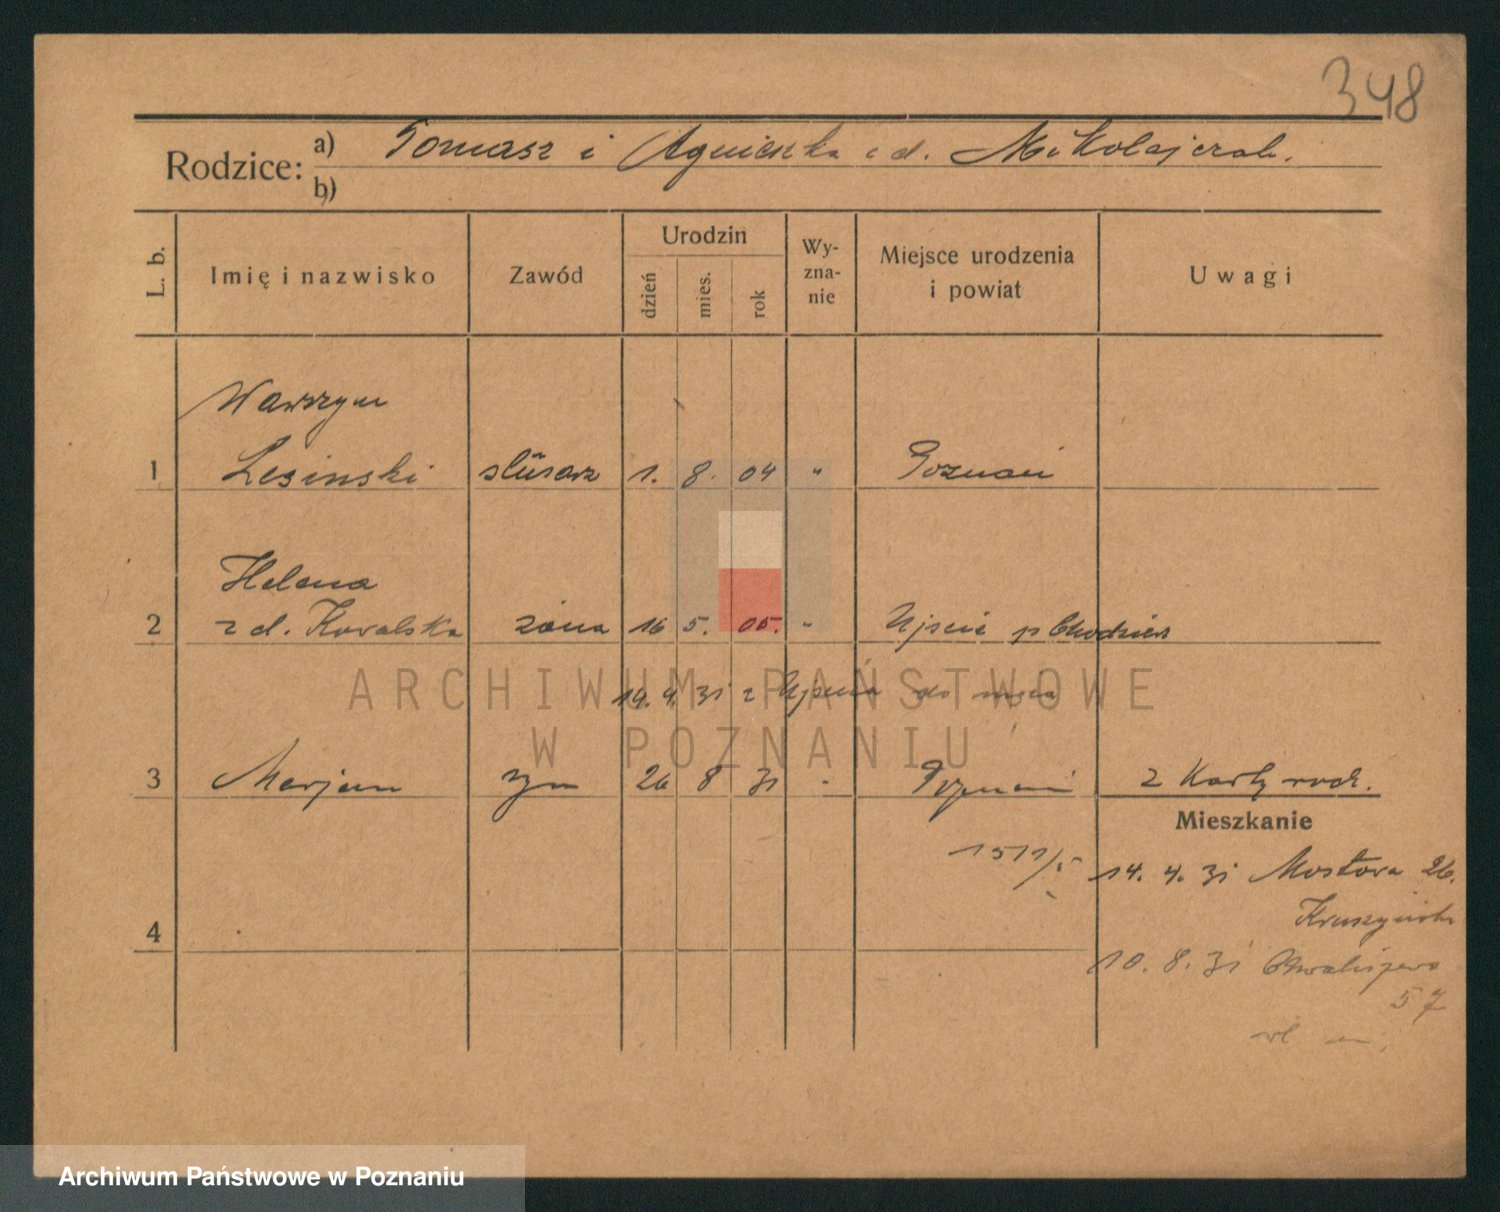 348
Rodzice: a) Tomasz i Agnieszka z d. Mikolajczak.
b)
L. b.
Imię i nazwisko
Zawód
Urodzin
dzień
mies.
rok
Wy-
zna-
nie
Miejsce urodzenia
i powiat
Uwagi
Wawrzyn
1 Lesinski slusarz 1. 8. 04 " Poznań
Helena
2 z d. Kowalska żona 16 5. 05. " Ujście p Chodzież
14. 4. 31 z Ujścia do męża
3 Marjan syn 26 8 31 - Poznań z Karty rodz.
Mieszkanie
14. 4. 31 Mostowa 26.
Kruszyńska
4
10. 8. 31 Chwaliszewo
57
ARCHIWUM PAŃSTWOWE
W POZNANIU
Archiwum Państwowe w Poznaniu